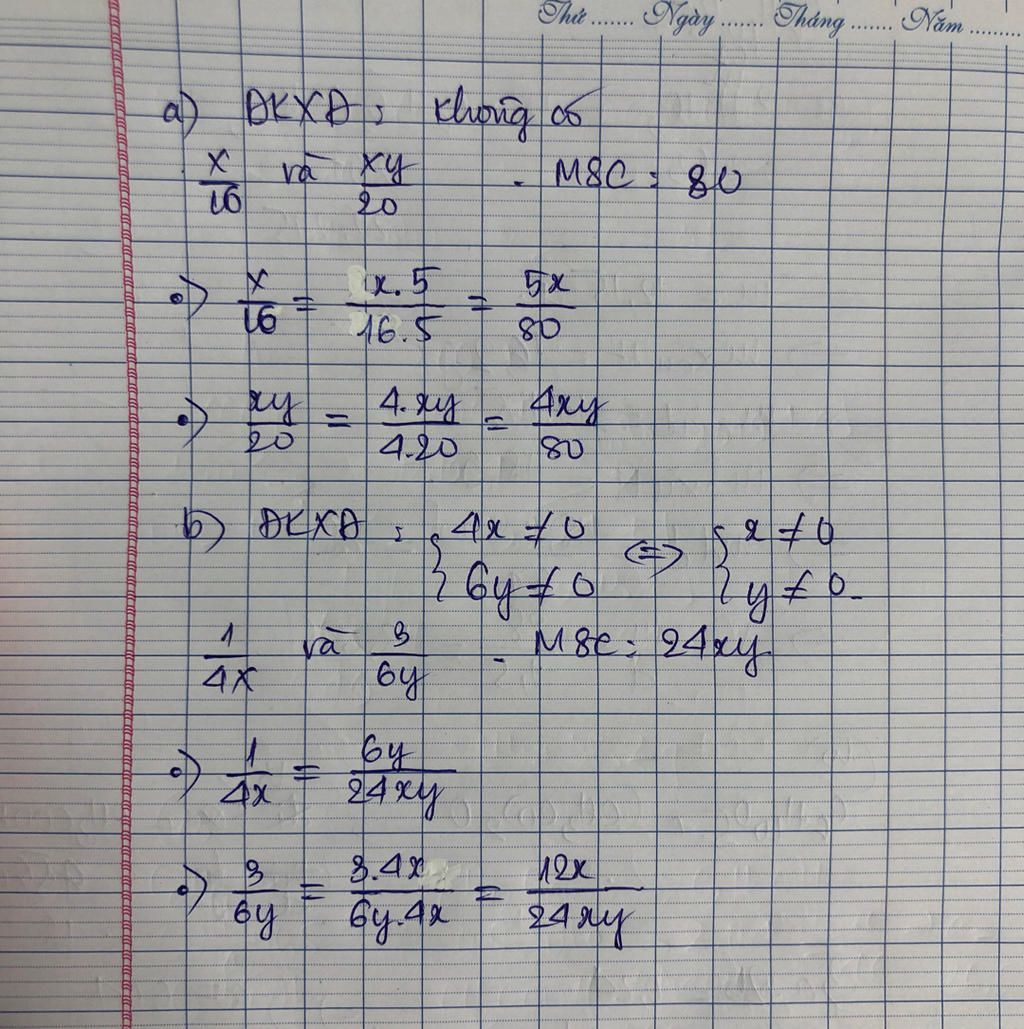 Thứ ....... Ngày ....... Tháng ....... Năm .........
a) ĐKXĐ : không có
x/16 và xy/20 - MSC : 80
•) x/16 = x.5/16.5 = 5x/80
•) xy/20 = 4.xy/4.20 = 4xy/80
b) ĐKXĐ : { 4x ≠ 0 6y ≠ 0 <=> { x ≠ 0 y ≠ 0.
1/4x và 3/6y - MSC : 24xy
•) 1/4x = 6y/24xy
•) 3/6y = 3.4x/6y.4x = 12x/24xy